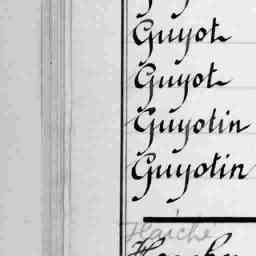 Guyot
Guyot
Guyotin
Guyotin
Haiché